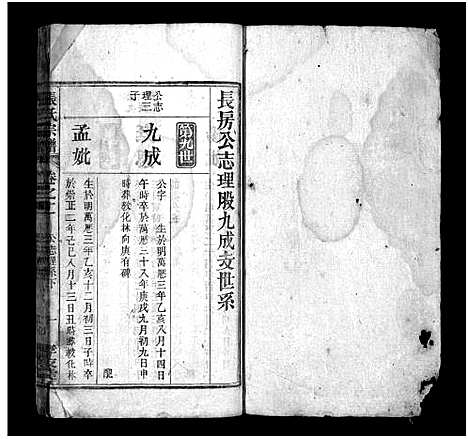 長房公志理股九成支世系
第九世
公志
理三
子
九成
公字　生於明萬曆三年乙亥八月十四日
午時卒於萬曆三十八年庚戌九月初九日申
時葬敎化林向庚有碑
配
孟妣
生於明萬曆三年乙亥十二月初三日子時卒
於崇正二年己巳八月十三日丑時葬敎化林
張氏宗譜
卷之十一
公志理系下
一